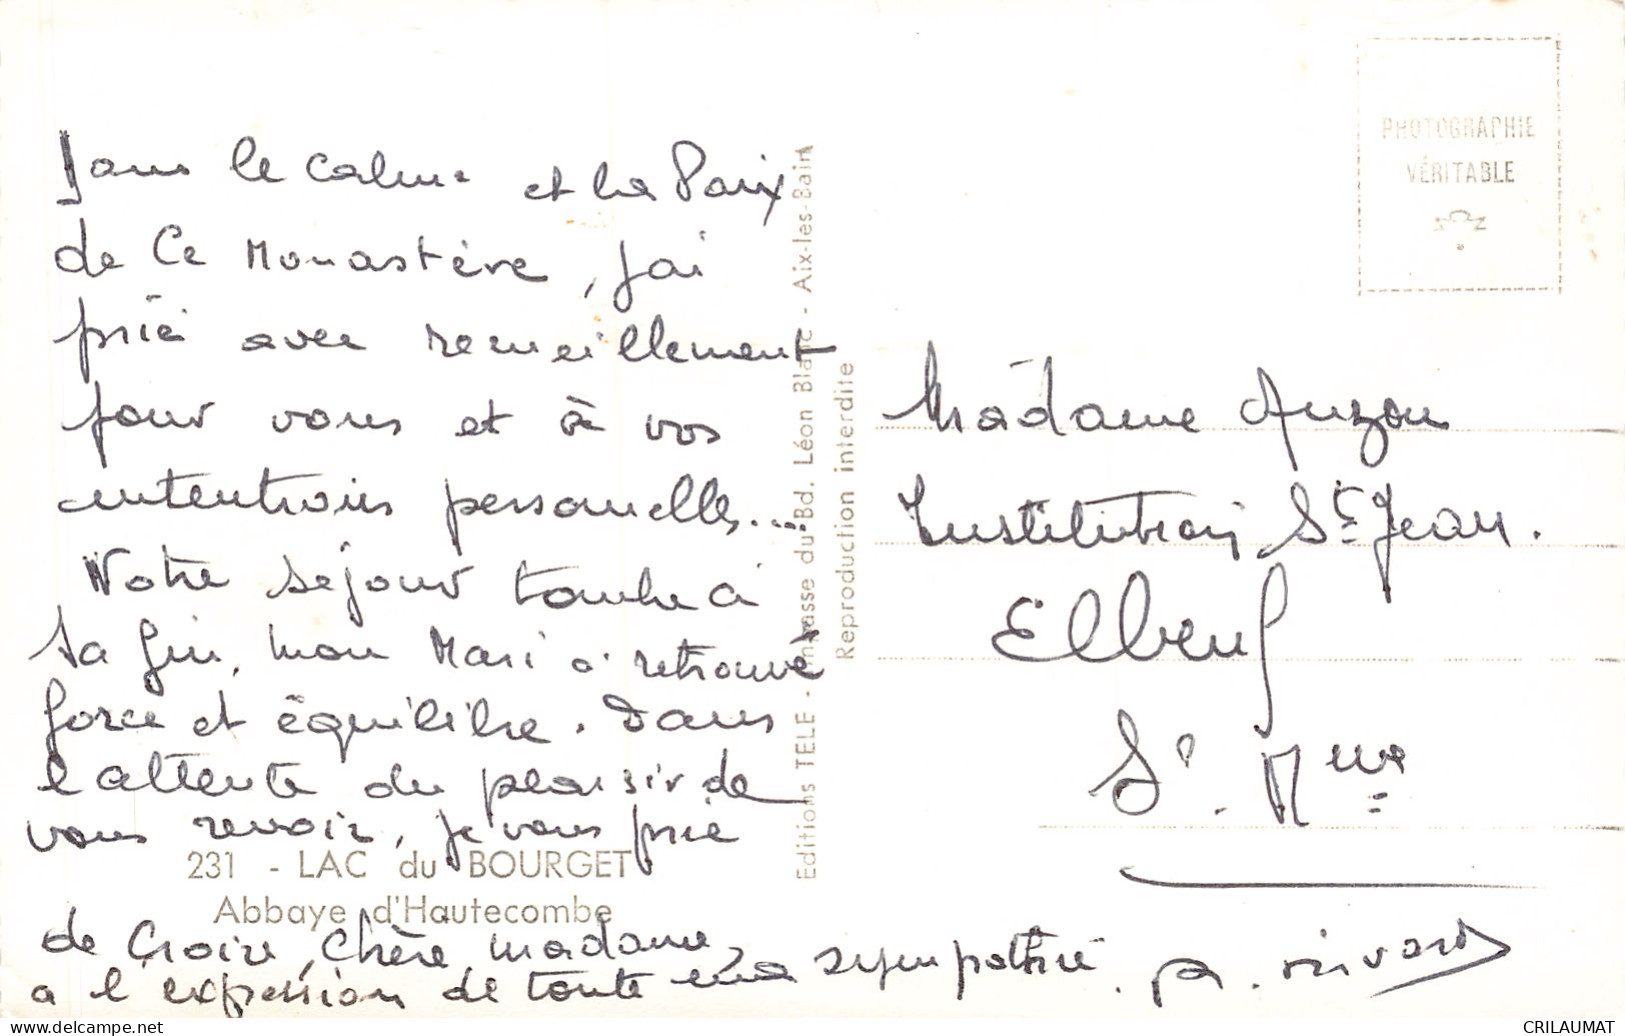 Dans le calme et la Paix
de Ce Monastère, j'ai
prié avec recueillement
pour vous et à vos
intentions personnelles....
Notre séjour touche à
sa fin, mon Mari a retrouvé
force et équilibre. Dans
l'attente du plaisir de
vous revoir, je vous prie
231 - LAC du BOURGET
Abbaye d'Hautecombe
de Croire, Chère madame,
a l'expression de toute ma sympathie.
Editions TELE - Impasse du Bd. Léon Blanc - Aix-les-Bains
Reproduction interdite
PHOTOGRAPHIE
VÉRITABLE
Madame Auzou
Institution St Jean.
Elbeuf
S. Mme
CRILAUMAT